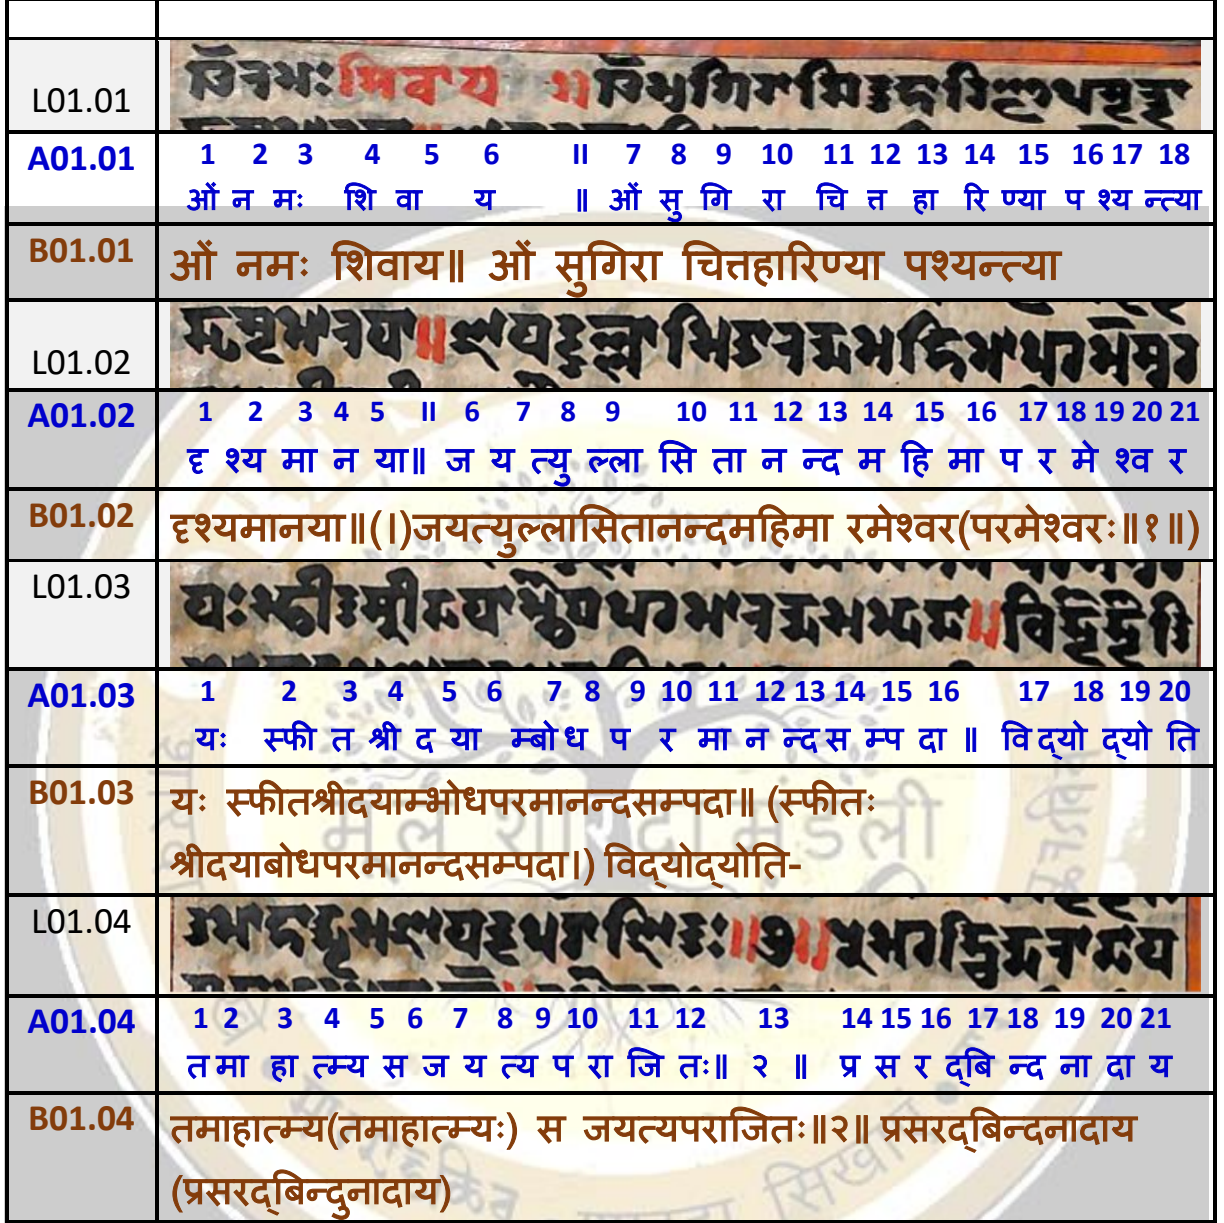 L01.01
𑆏𑆀𑆤𑆩𑆂𑆯𑆴𑆮𑆳𑆪 𑇆 𑆏𑆀𑆱𑆶𑆓𑆴𑆫𑆳𑆖𑆴𑆠𑇀𑆠𑆲𑆳𑆫𑆴𑆟𑇀𑆪𑆳𑆥𑆯𑇀𑆪𑆤𑇀𑆠𑇀𑆪𑆳
A01.01 1 2 3 4 5 6 II 7 8 9 10 11 12 13 14 15 16 17 18
ओं न मः शि वा य ॥ ओं सु गि रा चि त्त हा रि ण्या प श्य न्त्या
B01.01 ओं नमः शिवाय॥ ओं सुगिरा चित्तहारिण्या पश्यन्त्या
L01.02
𑆢𑆸𑆯𑇀𑆪𑆩𑆳𑆤𑆪𑆳𑇆𑆘𑆪𑆠𑇀𑆪𑆶𑆬𑇀𑆬𑆳𑆱𑆴𑆠𑆳𑆤𑆤𑇀𑆢𑆩𑆲𑆴𑆩𑆳𑆥𑆫𑆩𑆼𑆯𑇀𑆮𑆫
A01.02 1 2 3 4 5 II 6 7 8 9 10 11 12 13 14 15 16 17 18 19 20 21
दृ श्य मा न या॥ ज य त्यु ल्ला सि ता न न्द म हि मा प र मे श्व र
B01.02 दृश्यमानया॥(।)जयत्युल्लासितानन्दमहिमा रमेश्वर(परमेश्वरः॥१॥)
L01.03
𑆪𑆂𑆱𑇀𑆦𑆵𑆠𑆯𑇀𑆫𑆵𑆢𑆪𑆳𑆩𑇀𑆧𑆾𑆣𑆥𑆫𑆩𑆳𑆤𑆤𑇀𑆢𑆱𑆩𑇀𑆥𑆢𑆳𑇆𑆮𑆴𑆢𑇀𑆪𑆾𑆢𑇀𑆪𑆾𑆠𑆴
A01.03 1 2 3 4 5 6 7 8 9 10 11 12 13 14 15 16 17 18 19 20
यः स्फी त श्री द या म्बो ध प र मा न न्द स म्प दा ॥ वि द्यो द्यो ति
B01.03 यः स्फीतश्रीदयाम्भोधपरमानन्दसम्पदा॥ (स्फीतः
श्रीदयाबोधपरमानन्दसम्पदा।) विद्योद्योति-
L01.04
𑆠𑆩𑆳𑆲𑆳𑆠𑇀𑆩𑇀𑆪𑆱𑆘𑆪𑆠𑇀𑆪𑆥𑆫𑆳𑆘𑆴𑆠𑆂𑇆𑇒𑇆𑆥𑇀𑆫𑆱𑆫𑆢𑇀𑆧𑆴𑆤𑇀𑆢𑆤𑆳𑆢𑆳𑆪
A01.04 1 2 3 4 5 6 7 8 9 10 11 12 13 14 15 16 17 18 19 20 21
त मा हा त्म्य स ज य त्य प रा जि तः॥ २ ॥ प्र स र द्बि न्द ना दा य
B01.04 तमाहात्म्य(तमाहात्म्यः) स जयत्यपराजितः॥२॥ प्रसरद्बिन्दनादाय
(प्रसरद्बिन्दुनादाय)